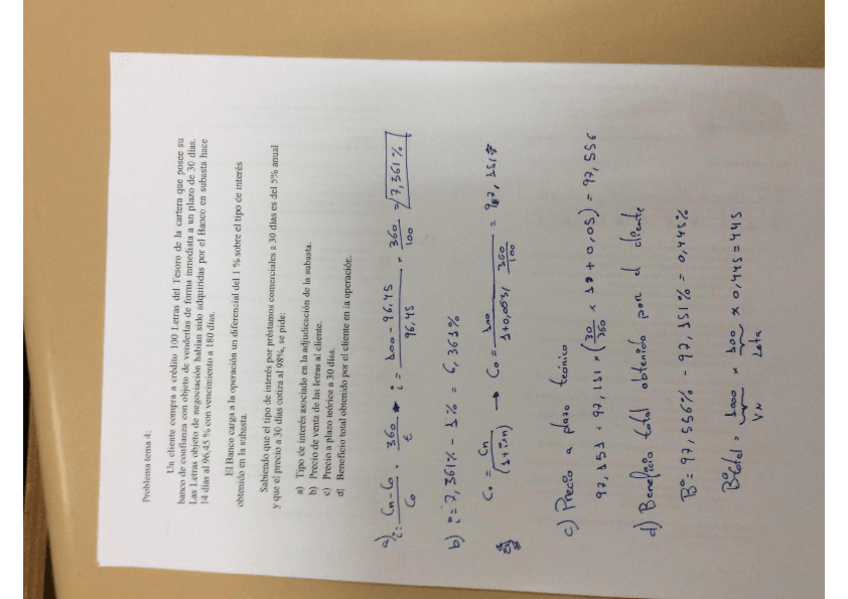 Problema tema 4:
Un cliente compra a crédito 100 Letras del Tesoro de la cartera que posee su
banco de confianza con objeto de venderlas de forma inmediata a un plazo de 30 días.
Las Letras objeto de negociación habían sido adquiridas por el Banco en subasta hace
14 días al 96,45 % con vencimiento a 180 días.
El Banco carga a la operación un diferencial del 1 % sobre el tipo de interés
obtenido en la subasta.
Sabiendo que el tipo de interés por préstamos comerciales a 30 días es del 5% anual
y que el precio a 30 días cotiza al 98%, se pide:
a) Tipo de interés asociado en la adjudicación de la subasta.
b) Precio de venta de las letras al cliente.
c) Precio a plazo teórico a 30 días.
d) Beneficio total obtenido por el cliente en la operación.
a) i = Cn - Co / Co · 360 / t → i = 100 - 96,45 / 96,45 · 360 / 100 = 7,361%
b) i = 7,361% - 1% = 6,361%
Co = Cn / (1 + i·n) → Co = 100 / = 97,151
c) Precio a plazo teórico
97,151 + 97,151 × (30/360 × + 0,05) = 97,556
d) Beneficio total obtenido por el cliente
Bº = 97,556% - 97,151% = 0,445%
Bº total = 1000 × 100 × 0,445 = 445
VN Letra